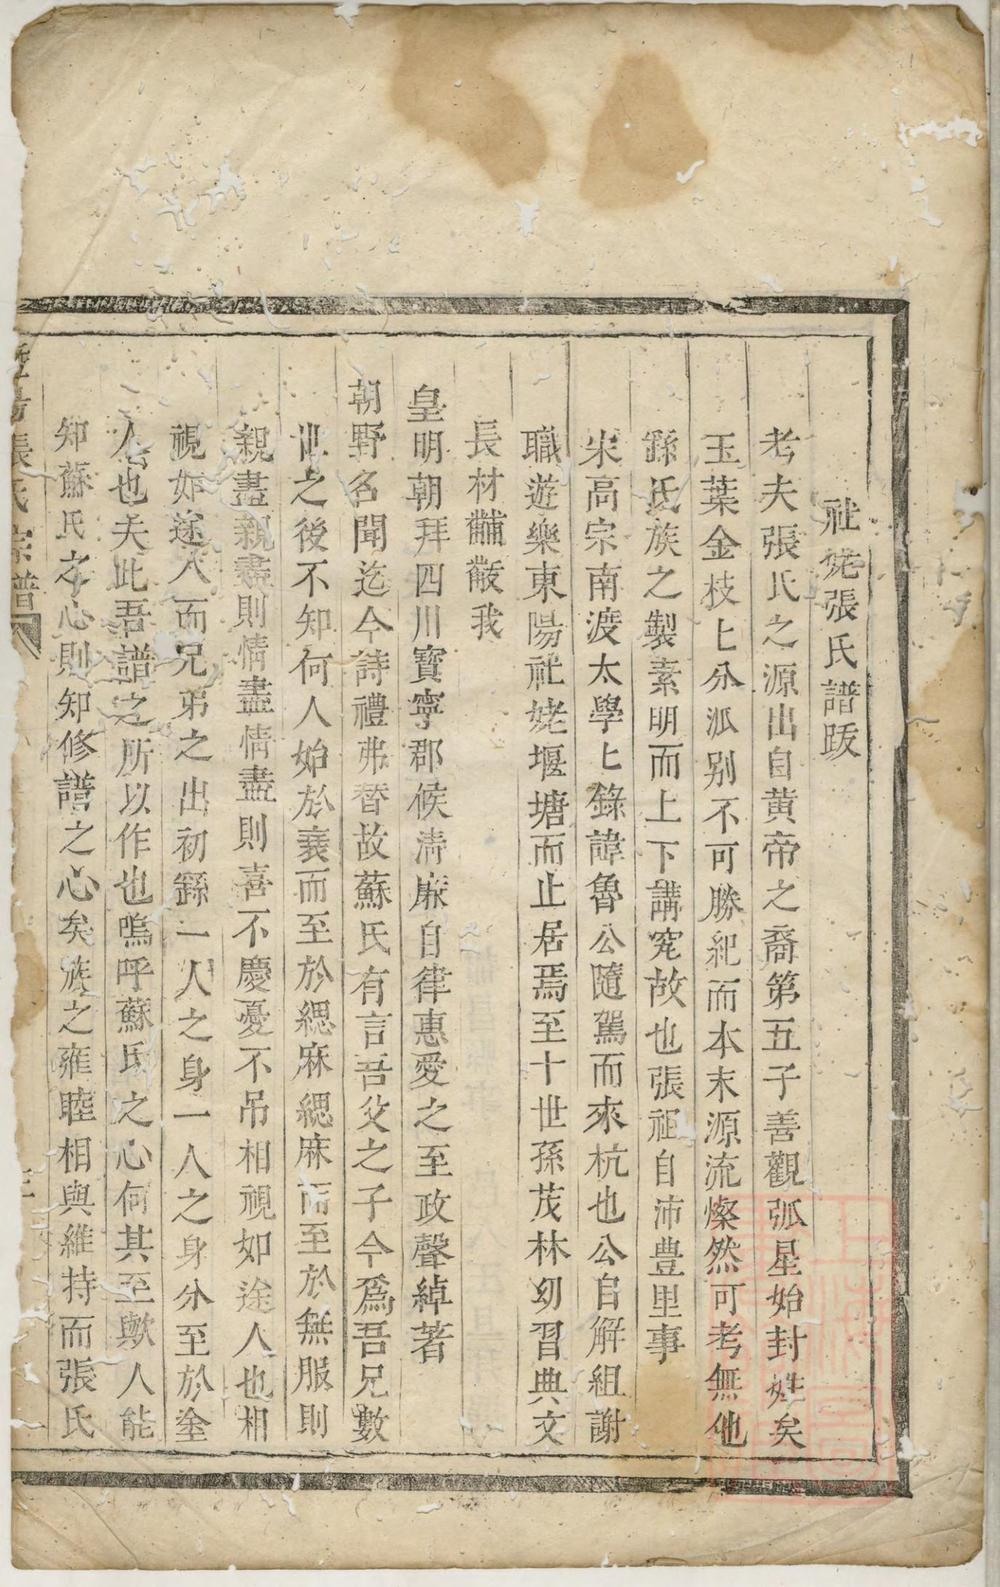 社姥張氏譜跋
考夫張氏之源出自黄帝之裔第五子善觀弧星始封姓矣
玉葉金枝上分派别不可勝紀而本末源流燦然可考無他
繇氏族之製素明而上下講究故也張祖自沛豊里事
宋高宗南渡太學上錄諱魯公隨駕而來杭也公自解組謝
職遊樂東陽社姥堰塘而止居焉至十世孫茂林幼習典文
長材黼黻我
皇明朝拜四川寳寧郡候清廉自律惠愛之至政聲綽著
朝野名聞迄今詩禮弗替故蘇氏有言吾父之子今爲吾兄數
世之後不知何人始於衰而至於緦麻緦麻而至於無服則
親盡親盡則情盡情盡則喜不慶憂不吊相視如途人也相
視如途人而兄弟之出初繇一人之身一人之身分至於塗
人也夫此吾譜之所以作也嗚呼蘇氏之心何其至歟人能
知蘇氏之心則知修譜之心矣族之雍睦相與維持而張氏
張氏宗譜